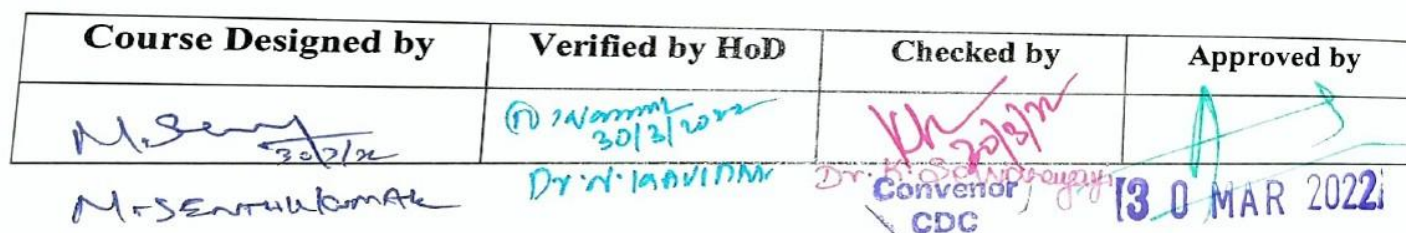 Course Designed by Verified by HoD Checked by Approved by
M. 30/3/22 30/3/2022 30/3/22
M. SENTHILKUMAR Dr. N. KAVITHA Dr. K.
Convenor 30 MAR 2022
CDC